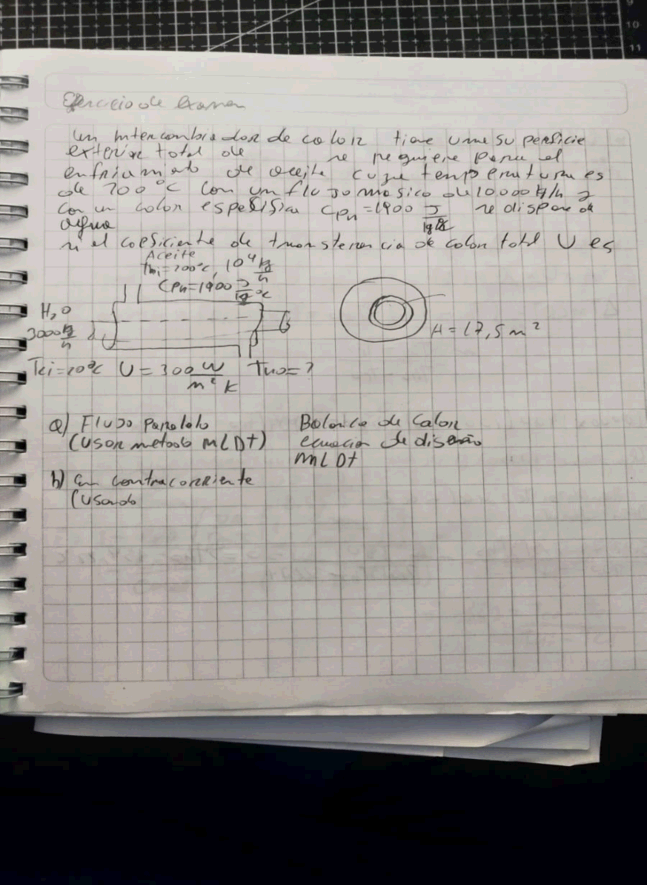 Ejercicio de examen
Un intercambiador de calor tiene una superficie
exterior total de se requiere para el
enfriamiento de aceite cuya temperatura es
de 200°C con un flujo masico de 10000 kg/h y
con un calor espesifico Cpn=1900 J/kg se dispone de
agua
si el coeficiente de transferencia de calor total U es
Aceite
Thi=200°C, 10⁴ kg/h
Cpn=1900 J/kg °C
H₂O
3000 kg/h
A=17,5 m²
Tci=20°C U=300 W/m² K Tho=?
a) Flujo Paralelo
(Usar metodo MLDt)
Balance de Calor
ecuacion de diseño
MLDt
b) En contracorriente
(Usando
10
11